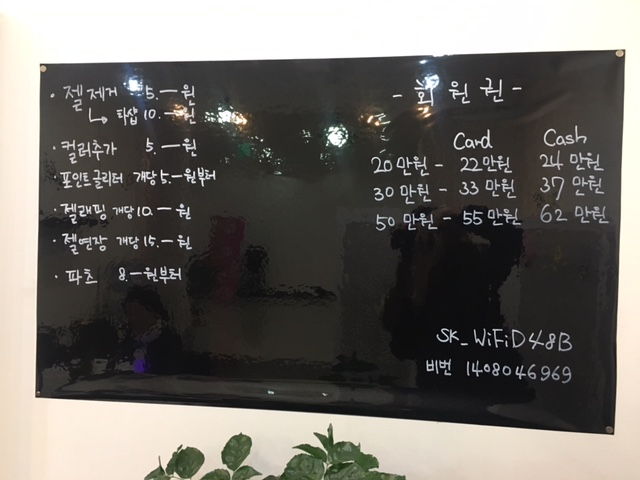 · 젤 제거 5.—원
↳ 타샵 10.—원
· 컬러추가 5.—원
· 포인트글리터 개당 5.—원부터
· 젤래핑 개당 10.—원
· 젤연장 개당 15.—원
· 파츠 8.—원부터
- 회원권 -
Card Cash
20만원 - 22만원 24만원
30만원 - 33만원 37만원
50만원 - 55만원 62만원
SK_WiFiD48B
비번 1408046969